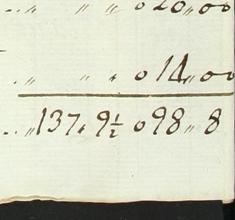 ..〃 〃 〃 020〃00
..〃 〃 〃 014〃00
..〃137〃9½ 098〃8